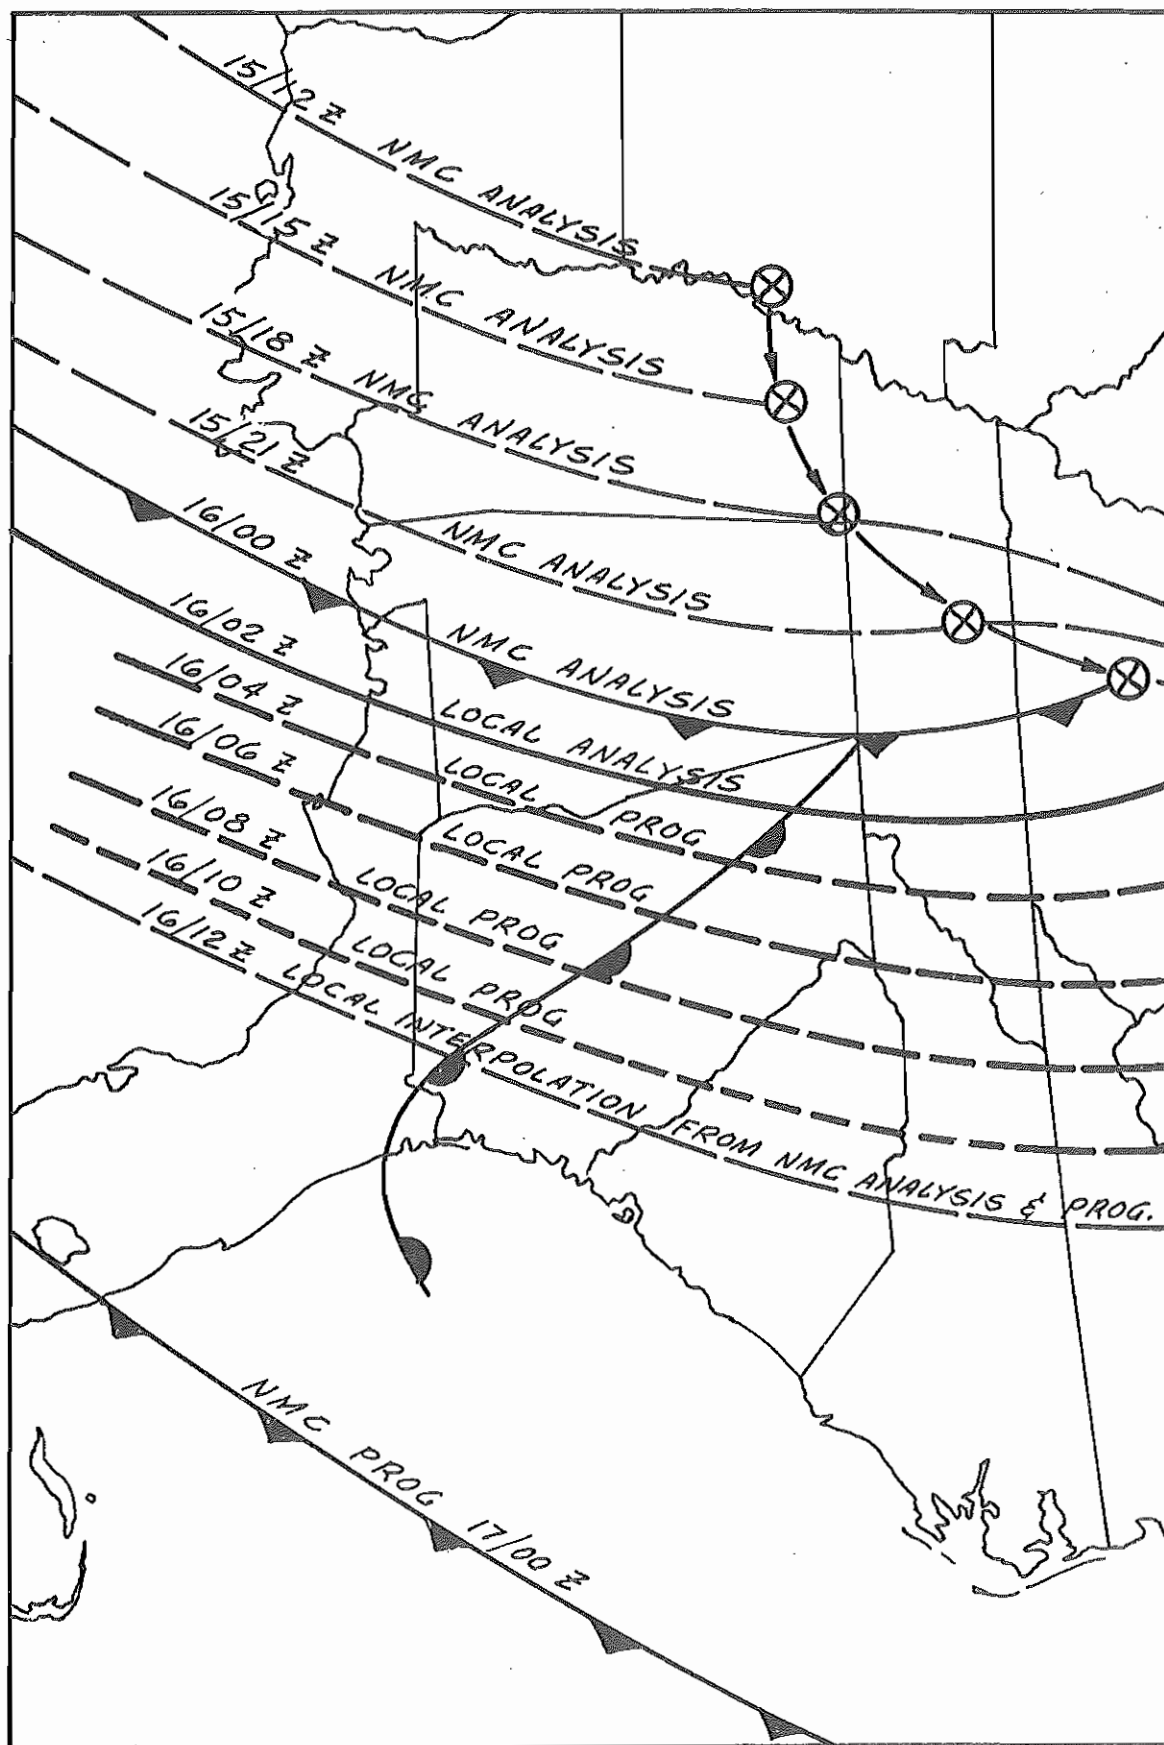 15/12 Z NMC ANALYSIS
15/15 Z NMC ANALYSIS
15/18 Z NMC ANALYSIS
15/21 Z NMC ANALYSIS
16/00 Z NMC ANALYSIS
16/02 Z LOCAL ANALYSIS
16/04 Z LOCAL PROG
16/06 Z LOCAL PROG
16/08 Z LOCAL PROG
16/10 Z LOCAL PROG
16/12 Z LOCAL INTERPOLATION FROM NMC ANALYSIS & PROG.
NMC PROG 17/00 Z